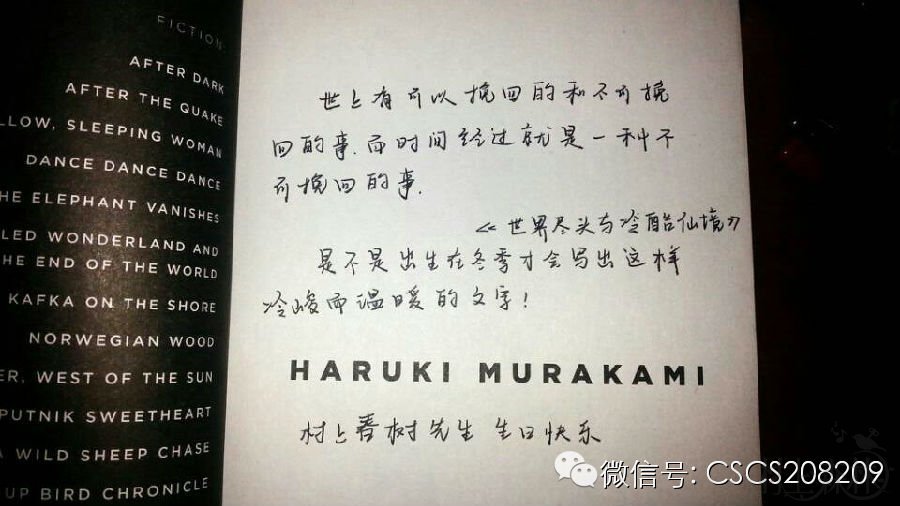 FICTION
AFTER DARK
AFTER THE QUAKE
LLOW, SLEEPING WOMAN
DANCE DANCE DANCE
HE ELEPHANT VANISHES
LED WONDERLAND AND
HE END OF THE WORLD
KAFKA ON THE SHORE
NORWEGIAN WOOD
ER, WEST OF THE SUN
PUTNIK SWEETHEART
A WILD SHEEP CHASE
UP BIRD CHRONICLE
世上有可以挽回的和不可挽
回的事,而时间经过就是一种不
可挽回的事.
《世界尽头与冷酷仙境》
是不是出生在冬季才会写出这样
冷峻而温暖的文字!
HARUKI MURAKAMI
村上春树先生 生日快乐
微信号: CSCS208209